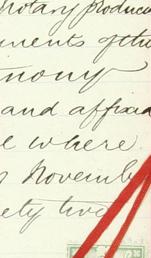 Notary produce
ments of the
mony
and affixed
e where
November
ety two